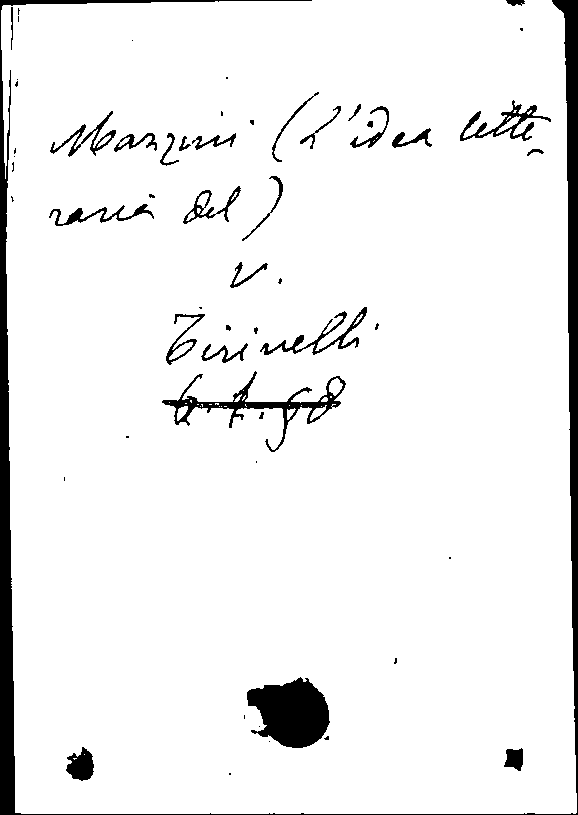 Mazzini (L'idea lette-
raria del)
v.
Tirinelli
6.7.98